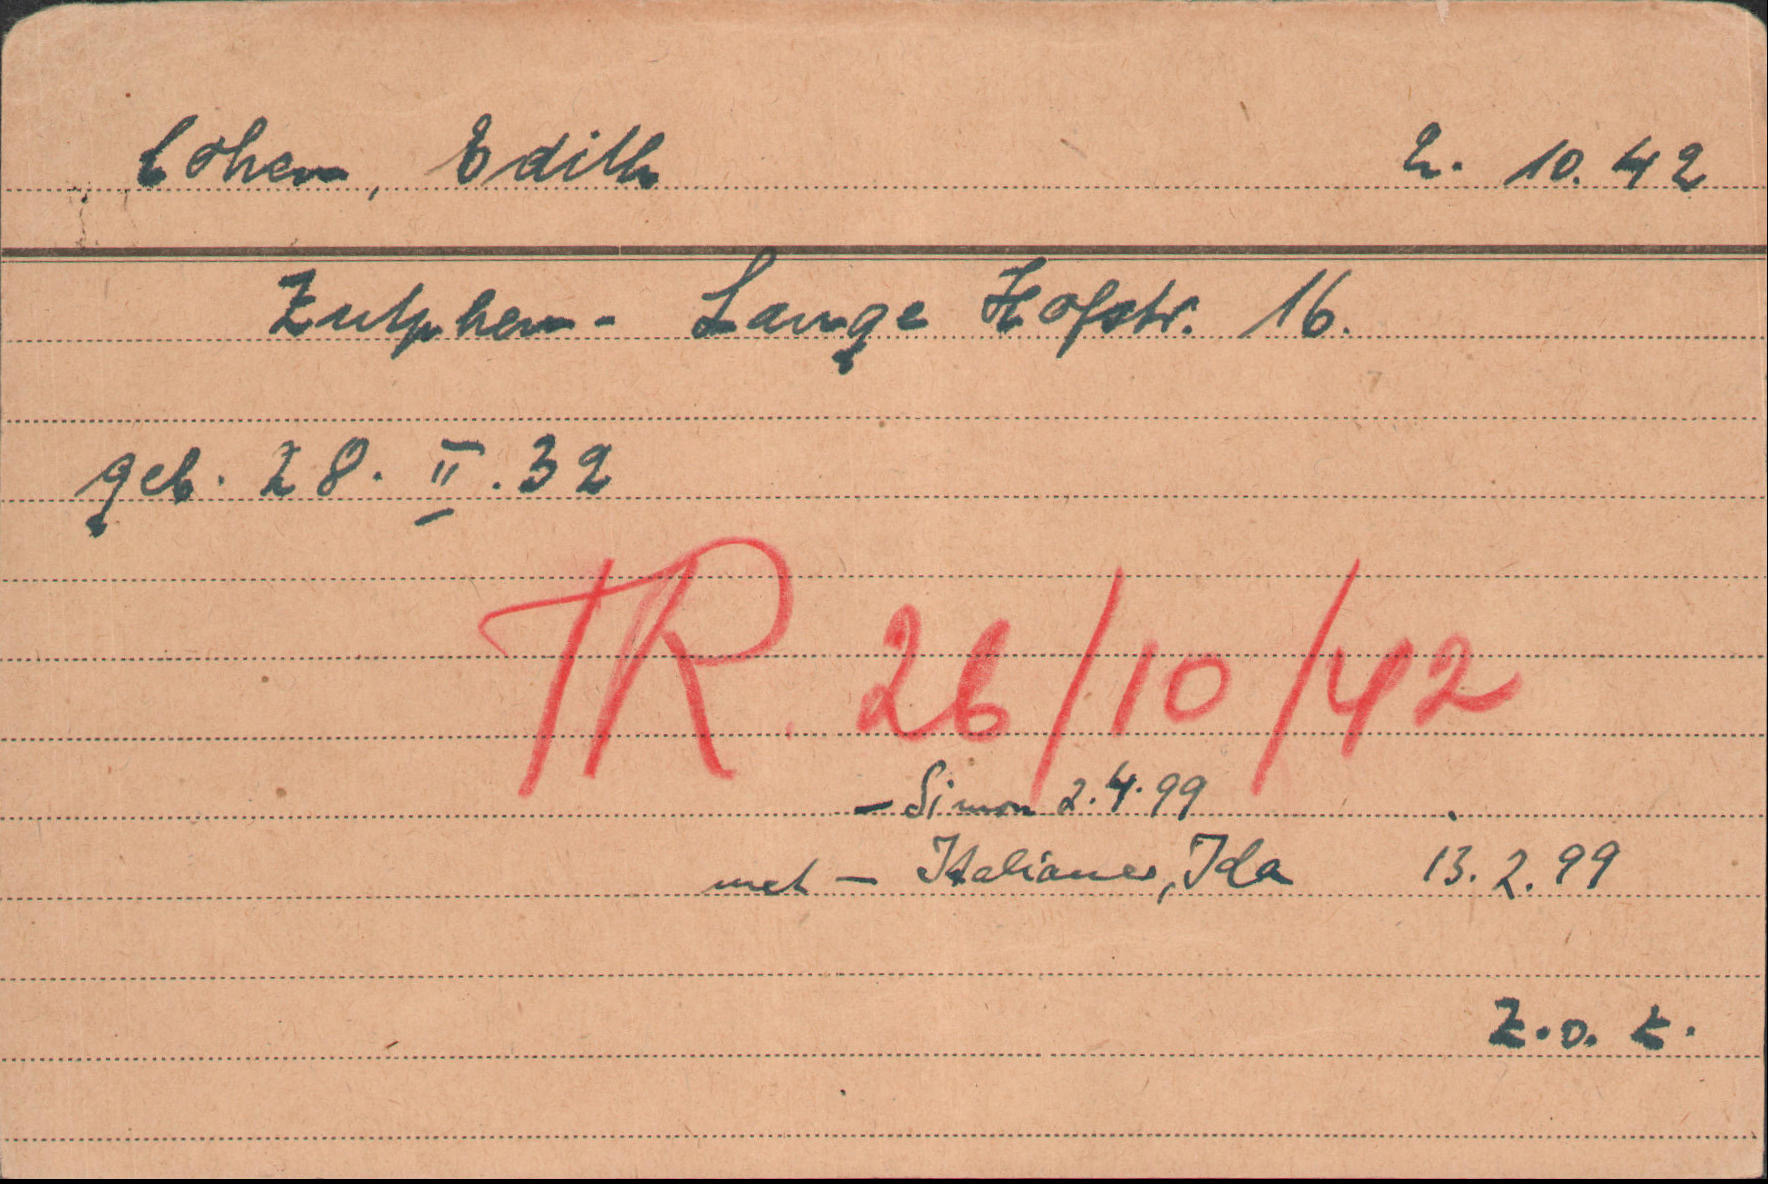 Cohen, Edith 2. 10. 42
Zutphen - Lange Hofstr. 16.
geb. 28. II. 32
TR. 26/10/42
- Simon 2.4.99
met - Italianer, Ida 13.2.99
Z.o.Z.